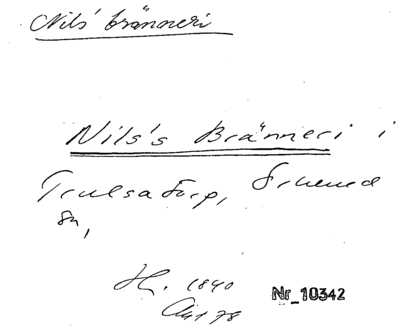 Nils' bränneri
Nils's Bränneri i
Trulsatorp,
sn,
1840
Nr_10342